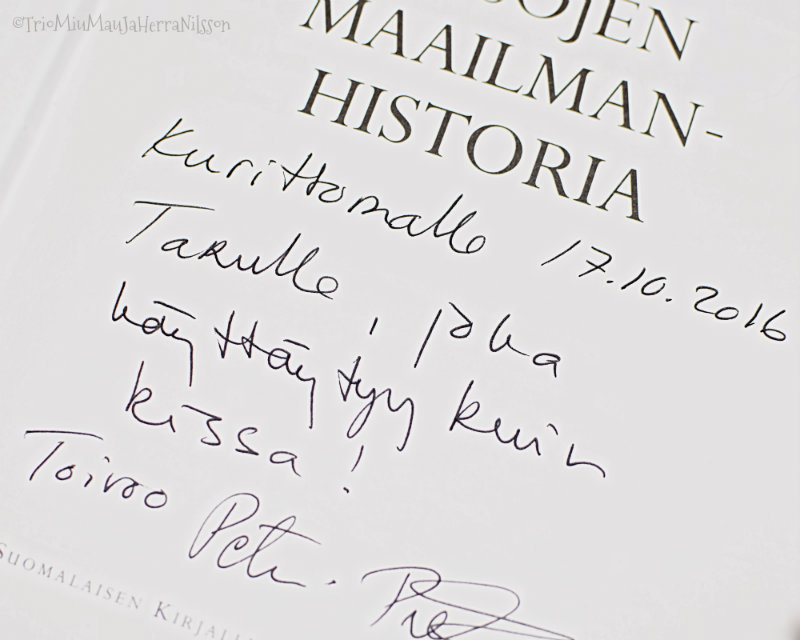 ©TrioMiuMauJaHerraNilsson
OJEN
MAAILMAN-
HISTORIA
Kurittomalle 17.10.2016
Tarulle, joka
käyttäytyy kuin
kissa!
Toivoo
SUOMALAISEN KIRJALL